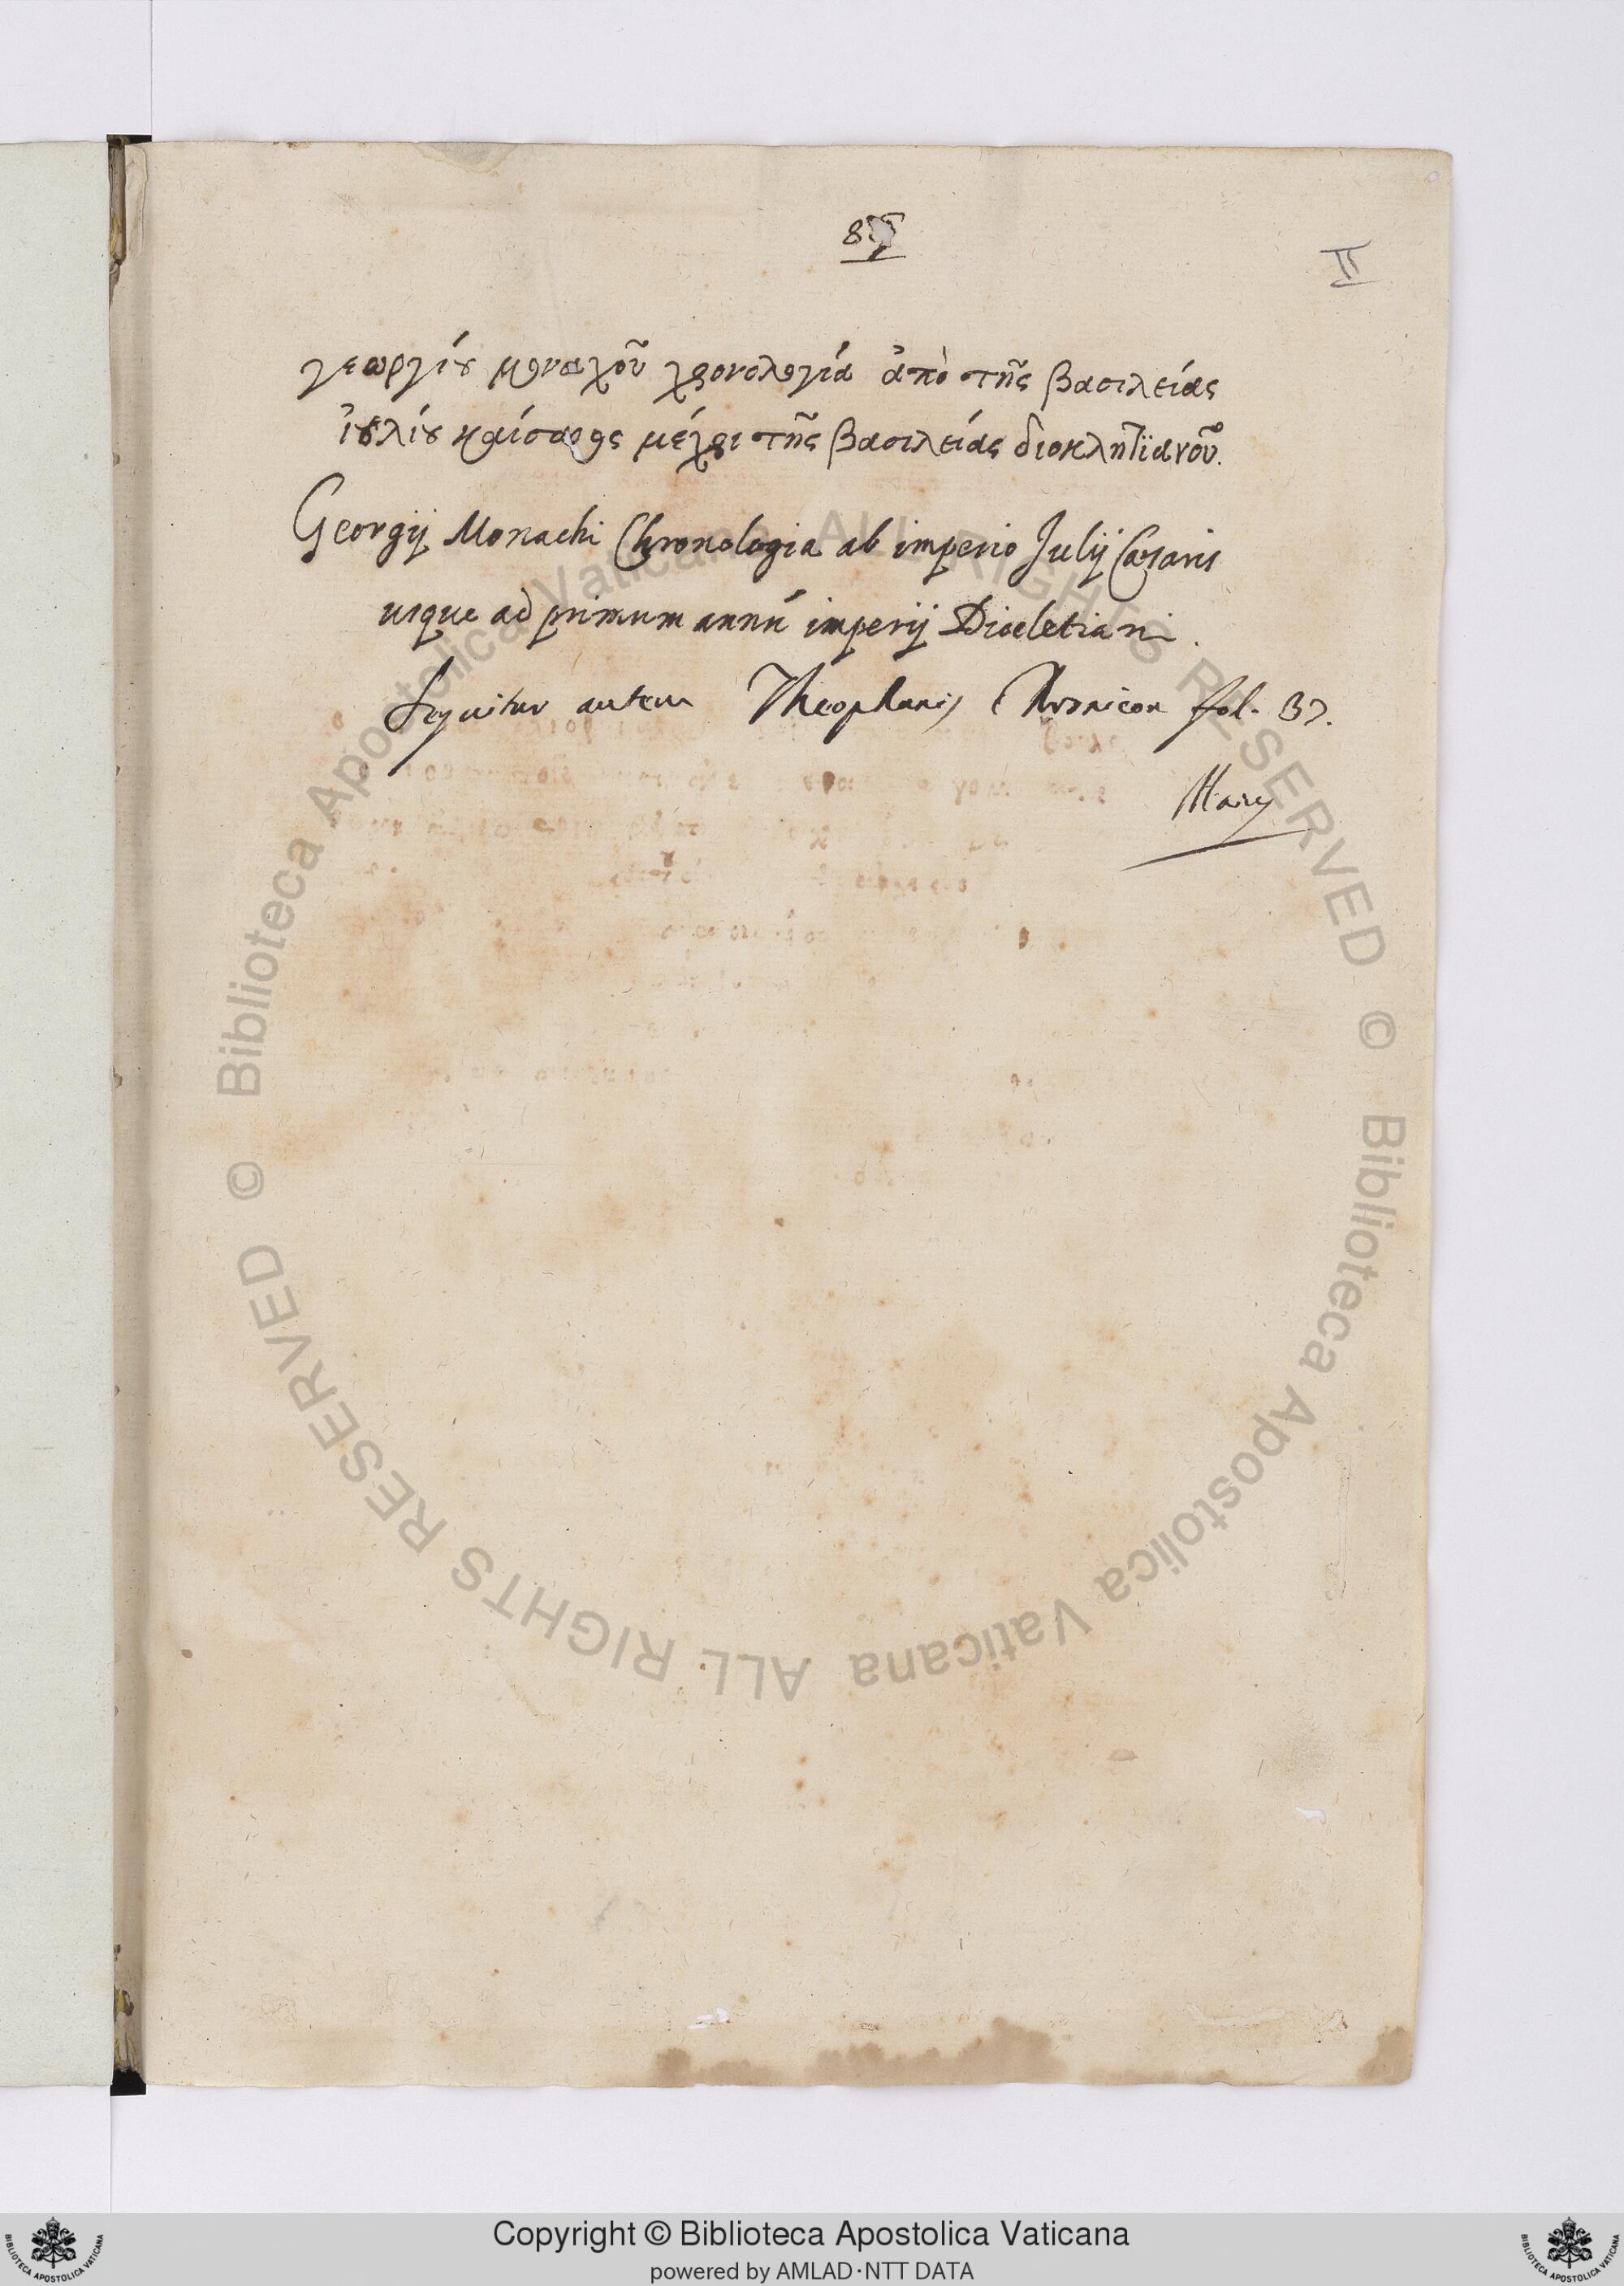 II
γεωργίου μοναχοῦ χρονολογία ἀπὸ τῆς βασιλείας
ἰουλίου καίσαρος μέχρι τῆς βασιλείας διοκλητϊανοῦ.
Georgij Monachi Chronologia ab imperio Julij Cæsaris
usque ad primum annū imperij Diocletiani.
Sequitur autem Theophanis Chronicon fol. 37.
© Biblioteca Apostolica Vaticana ALL RIGHTS RESERVED
© Biblioteca Apostolica Vaticana ALL RIGHTS RESERVED
Copyright © Biblioteca Apostolica Vaticana
powered by AMLAD·NTT DATA
BIBLIOTECA APOSTOLICA VATICANA
BIBLIOTECA APOSTOLICA VATICANA